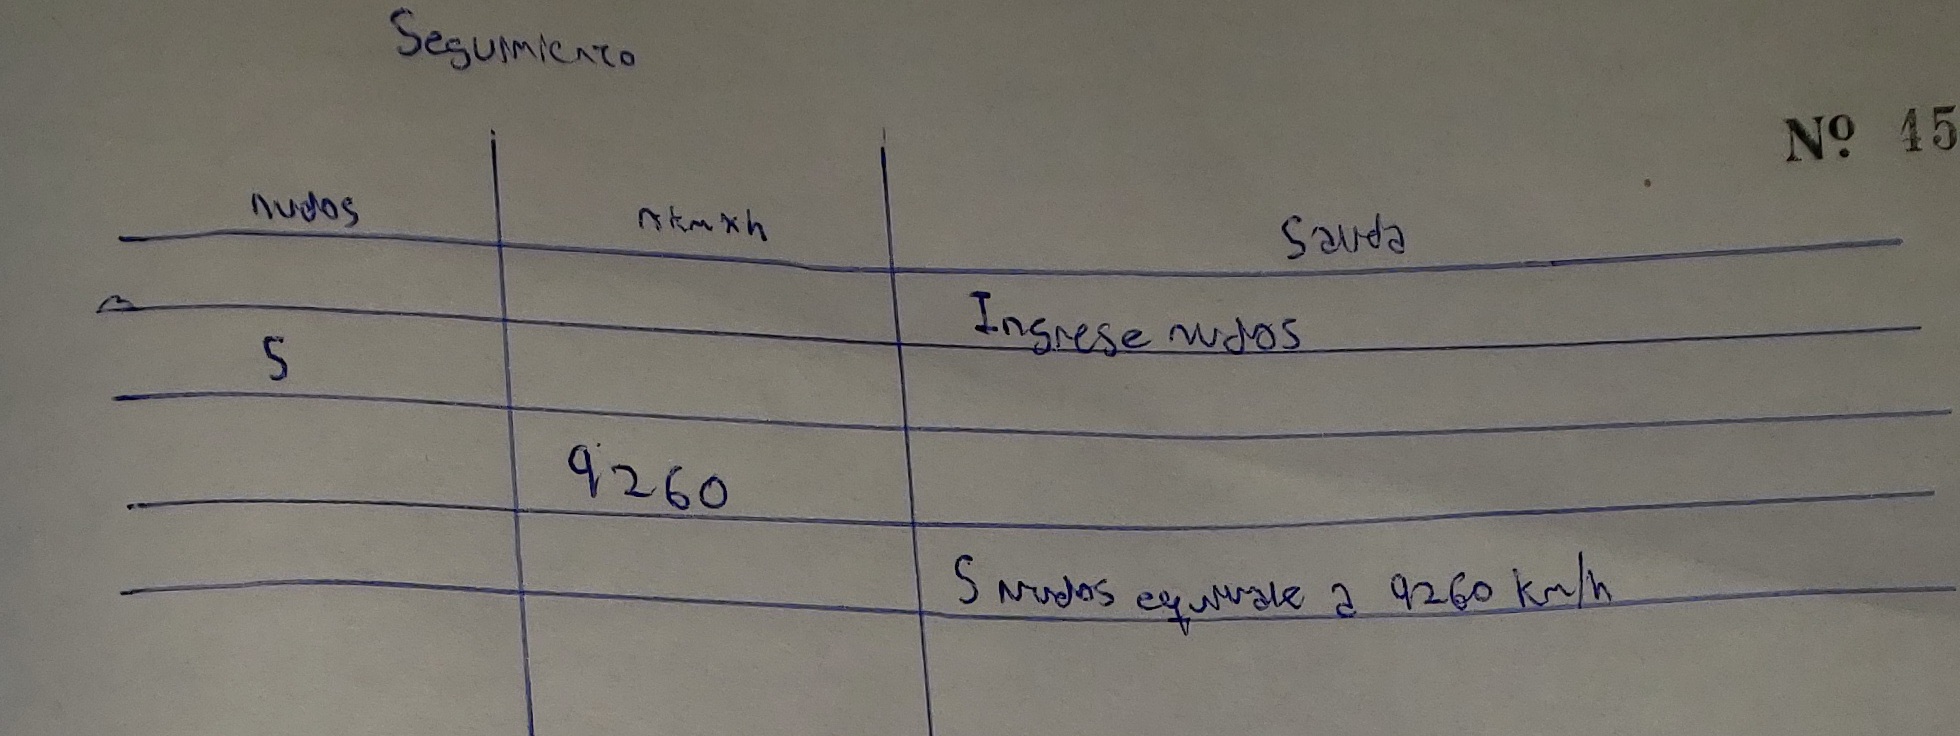 Seguimiento
Nº 15
nudos kmxh Salida
Ingrese nudos
5
9260
5 nudos equivale a 9260 km/h